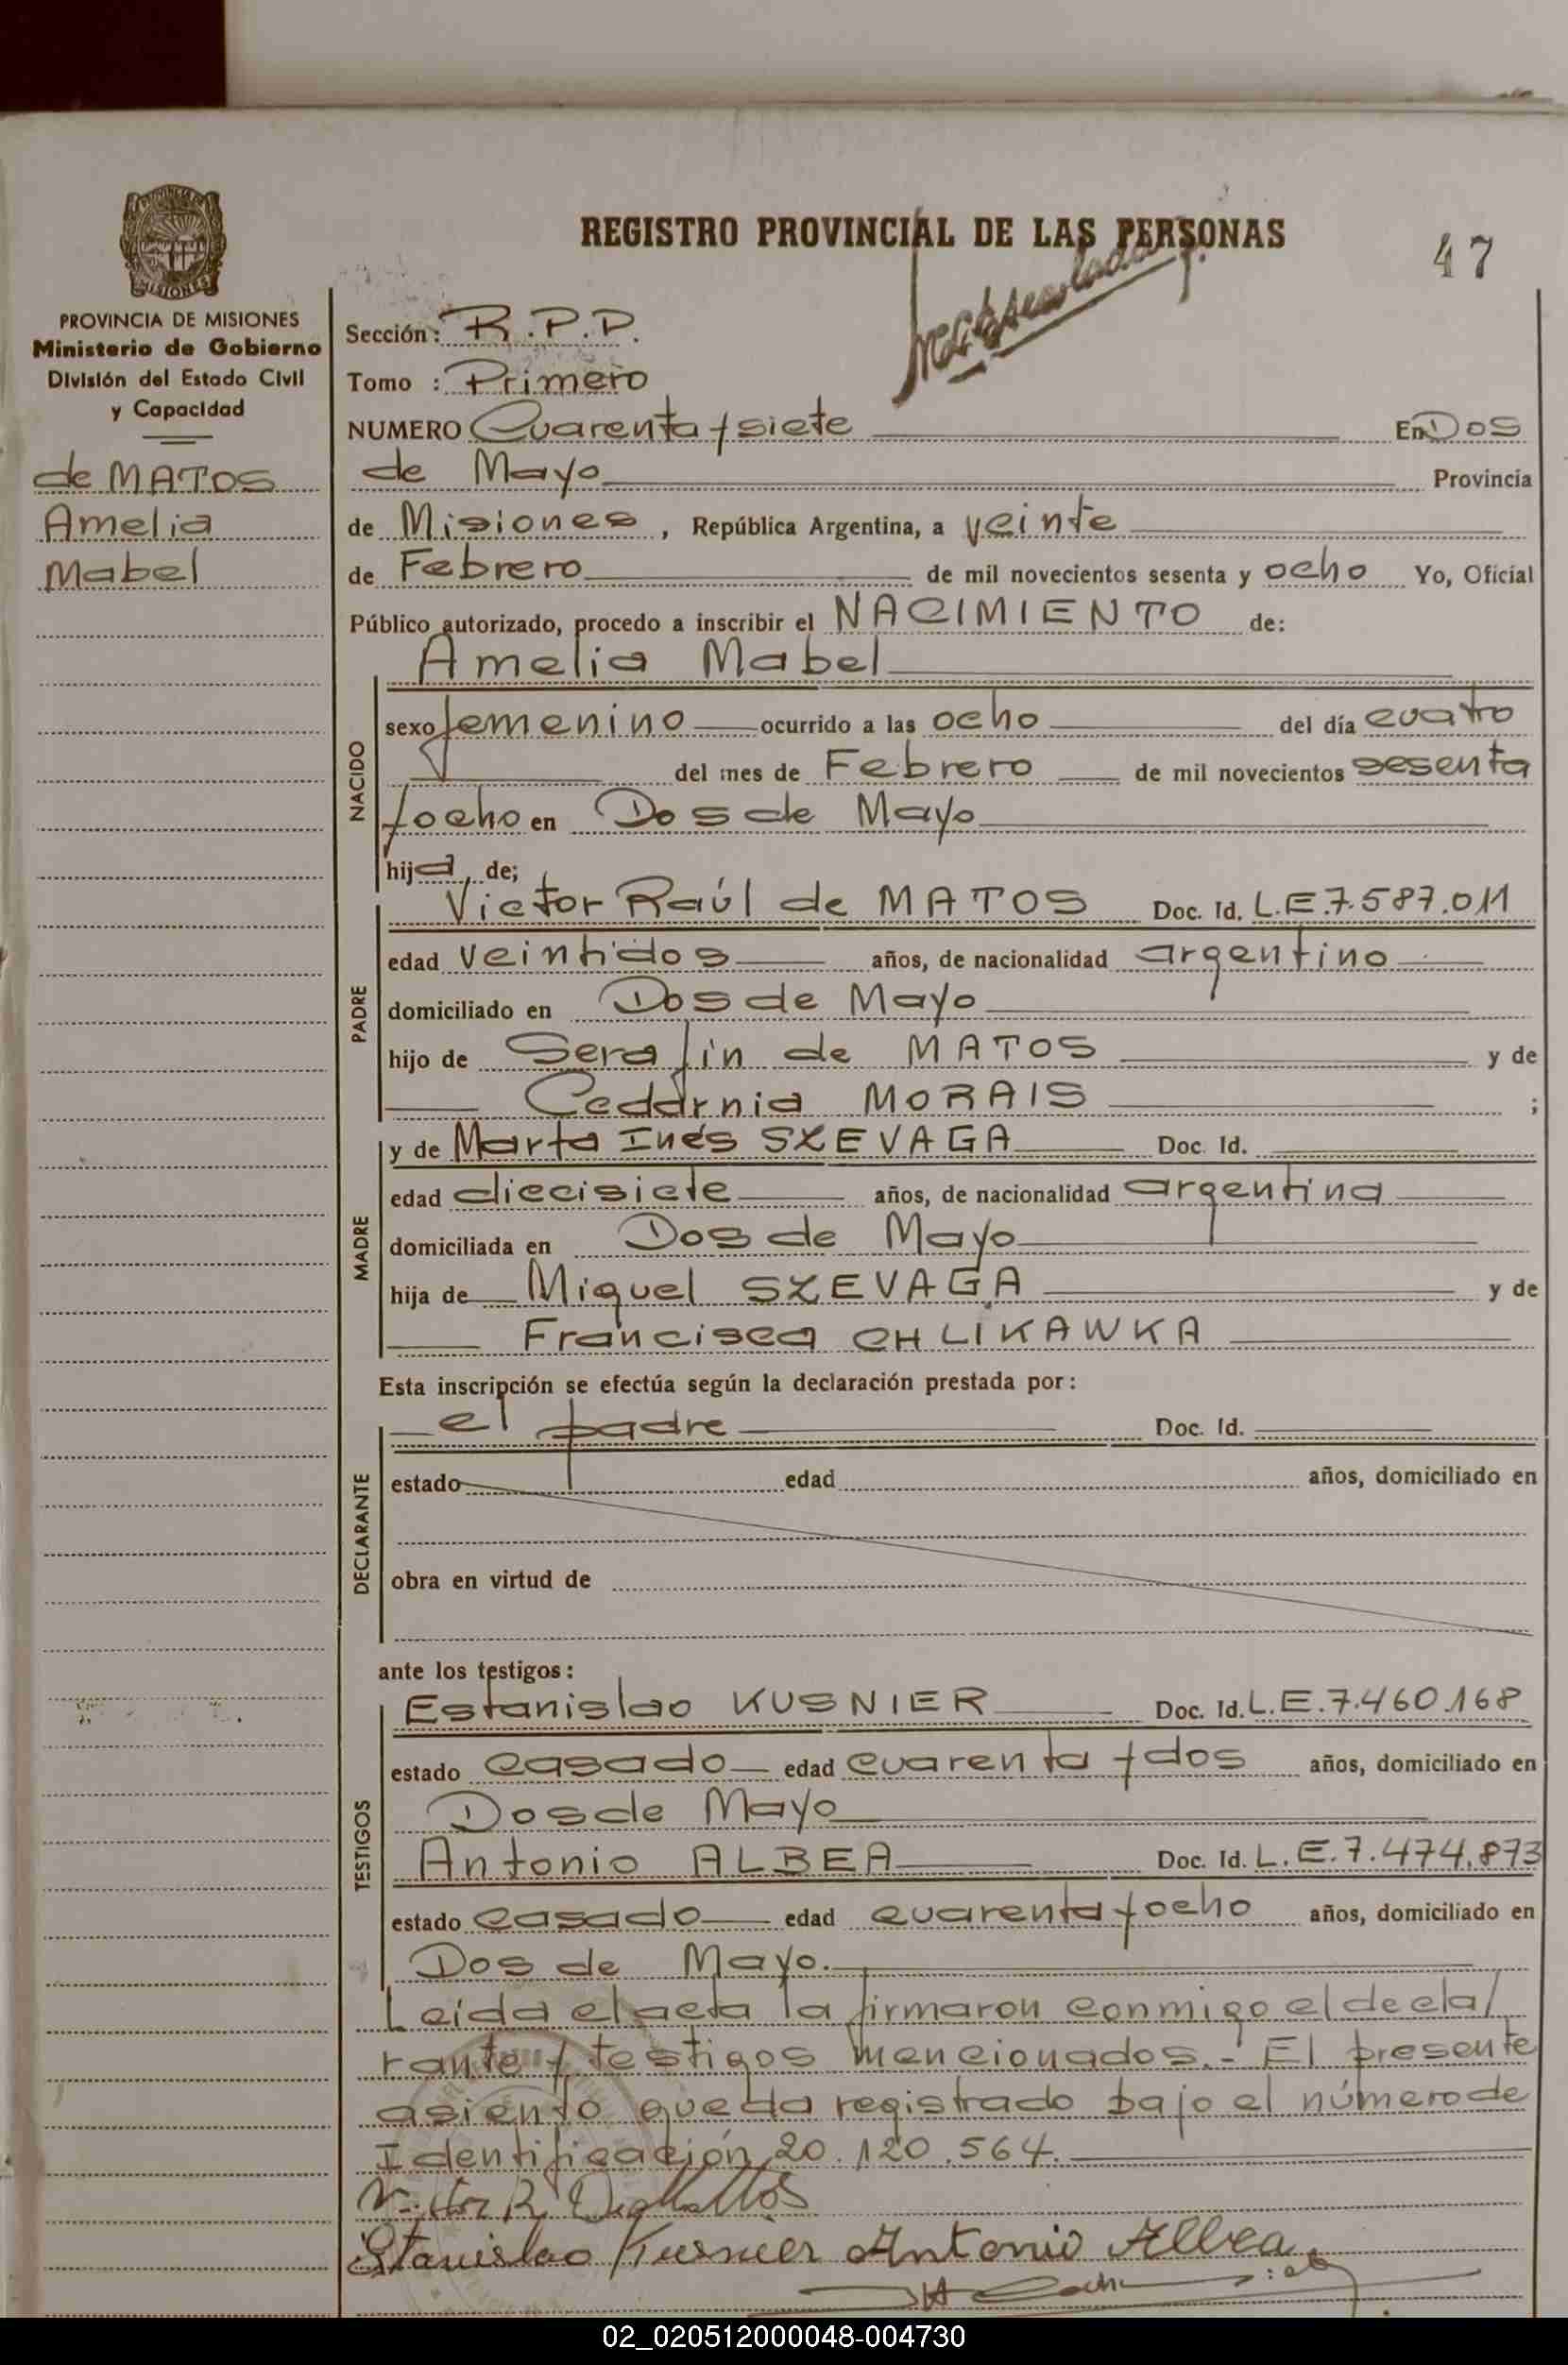 REGISTRO PROVINCIAL DE LAS PERSONAS
47
PROVINCIA DE MISIONES
Ministerio de Gobierno
División del Estado Civil
y Capacidad
de MATOS
Amelia
Mabel
Sección: R.P.P.
Tomo : Primero
NUMERO Cuarenta y siete En Dos
de Mayo Provincia
de Misiones, República Argentina, a veinte
de Febrero de mil novecientos sesenta y ocho Yo, Oficial
Público autorizado, procedo a inscribir el NACIMIENTO de:
Amelia Mabel
NACIDO
sexo femenino ocurrido a las ocho del día cuatro
del mes de Febrero de mil novecientos sesenta
y ocho en Dos de Mayo
hija de;
PADRE
Victor Raúl de MATOS Doc. Id. L.E.7.587.011
edad veintidos años, de nacionalidad argentino
domiciliado en Dos de Mayo
hijo de Serafín de MATOS y de
MORAIS ;
MADRE
y de Marta Inés SZEVAGA Doc. Id.
edad diecisiete años, de nacionalidad argentina
domiciliada en Dos de Mayo
hija de Miguel SZEVAGA y de
Francisca CHLIKAWKA
Esta inscripción se efectúa según la declaración prestada por:
DECLARANTE
el padre Doc. Id.
estado edad años, domiciliado en
obra en virtud de
ante los testigos:
TESTIGOS
Estanislao KUSNIER Doc. Id. L.E.7.460.168
estado casado edad cuarenta y dos años, domiciliado en
Dos de Mayo
Antonio ALBEA Doc. Id. L.E.7.474.873
estado casado edad cuarenta y ocho años, domiciliado en
Dos de Mayo.
Leída el acta la firmaron conmigo el decla/
rante y testigos mencionados.- El presente
asiento queda registrado bajo el número de
Identificación 20.120.564.
Victor R. De Mattos
Stanislao Kusnier Antonio Albea
02_020512000048-004730